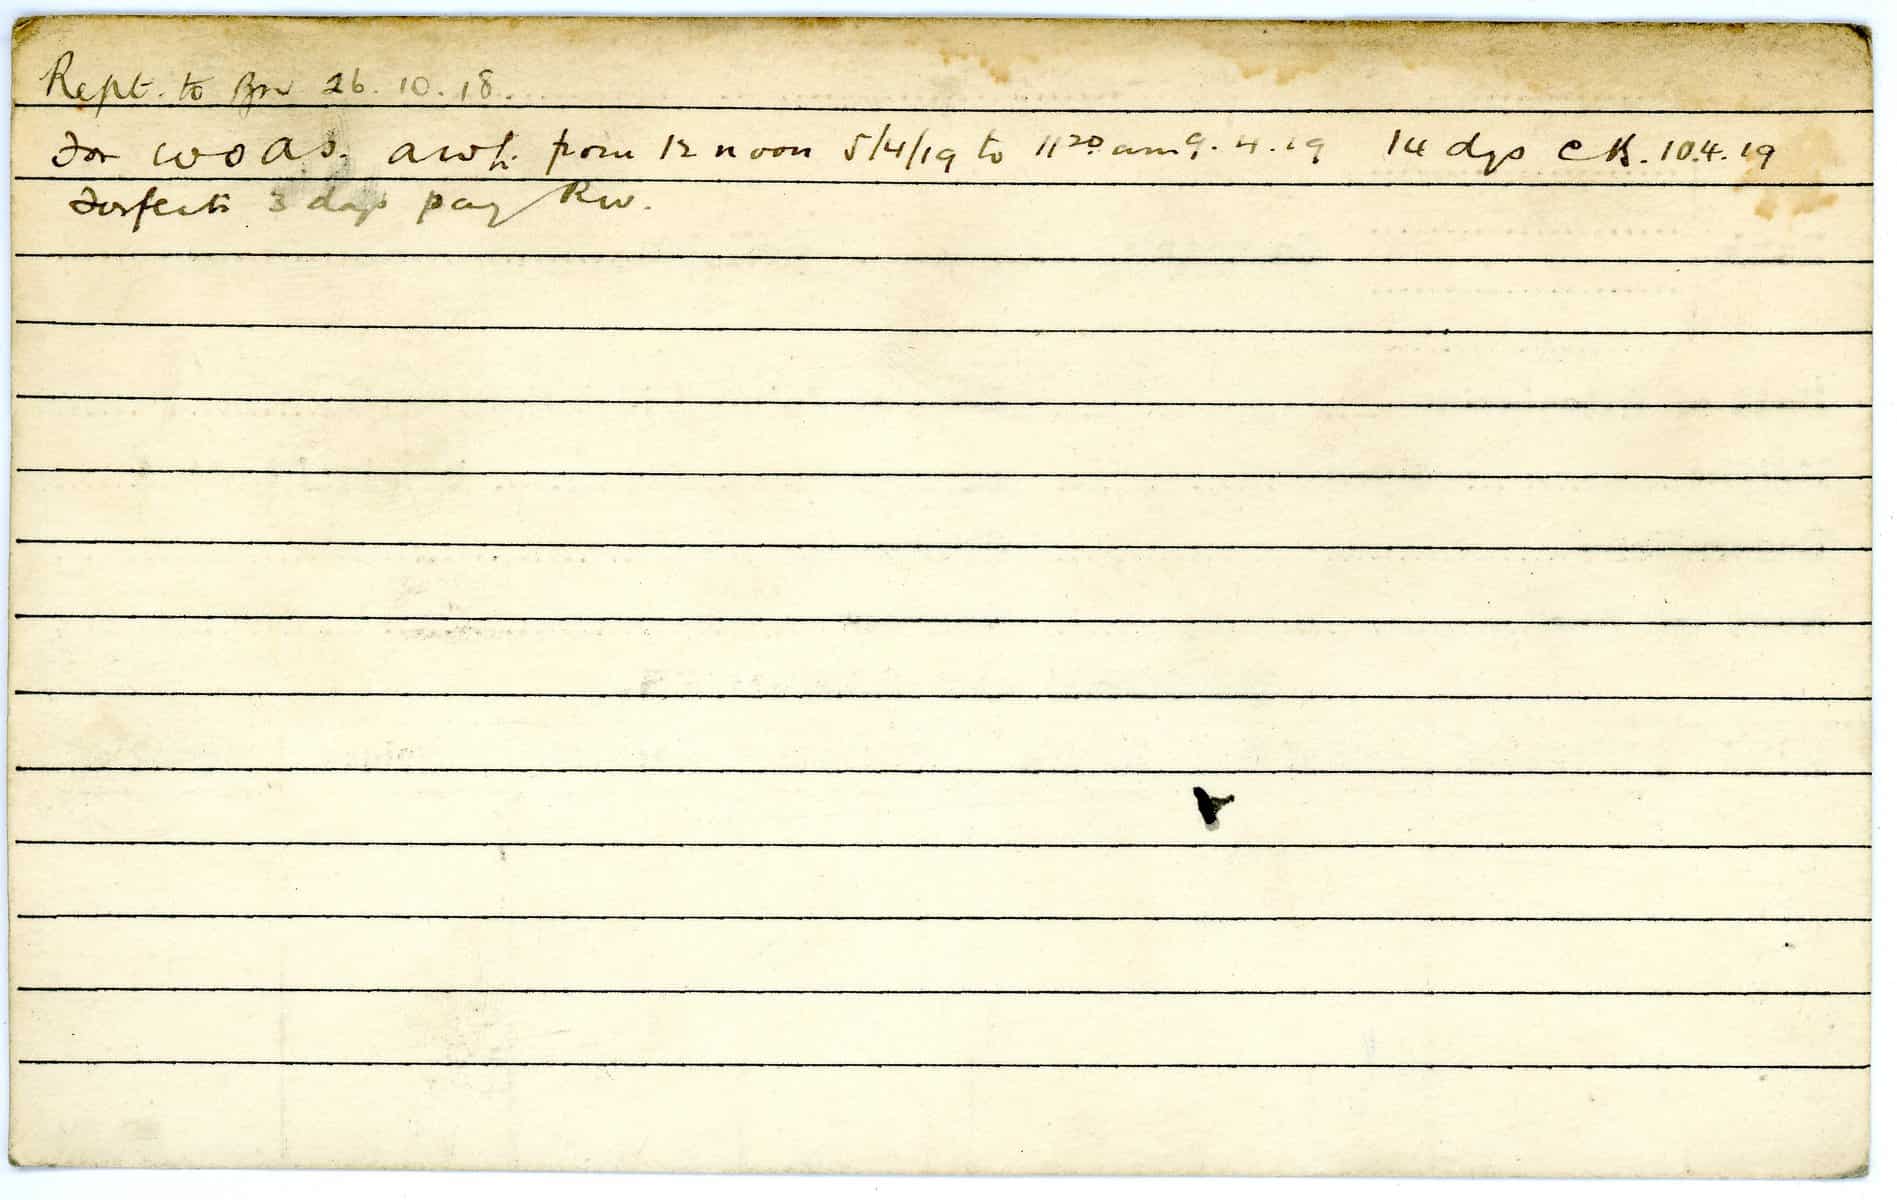 Rept. to Bn 26.10.18.
For WOAS. awl. from 12 noon 5/4/19 to 11 20 am 9.4.19 14 dys CB. 10.4.19
Forfeits 3 days pay RW.